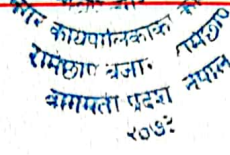 नगर कार्यपालिकाको का
रामेछाप बजार रामेछाप
बागमती प्रदेश नेपाल
२०७३